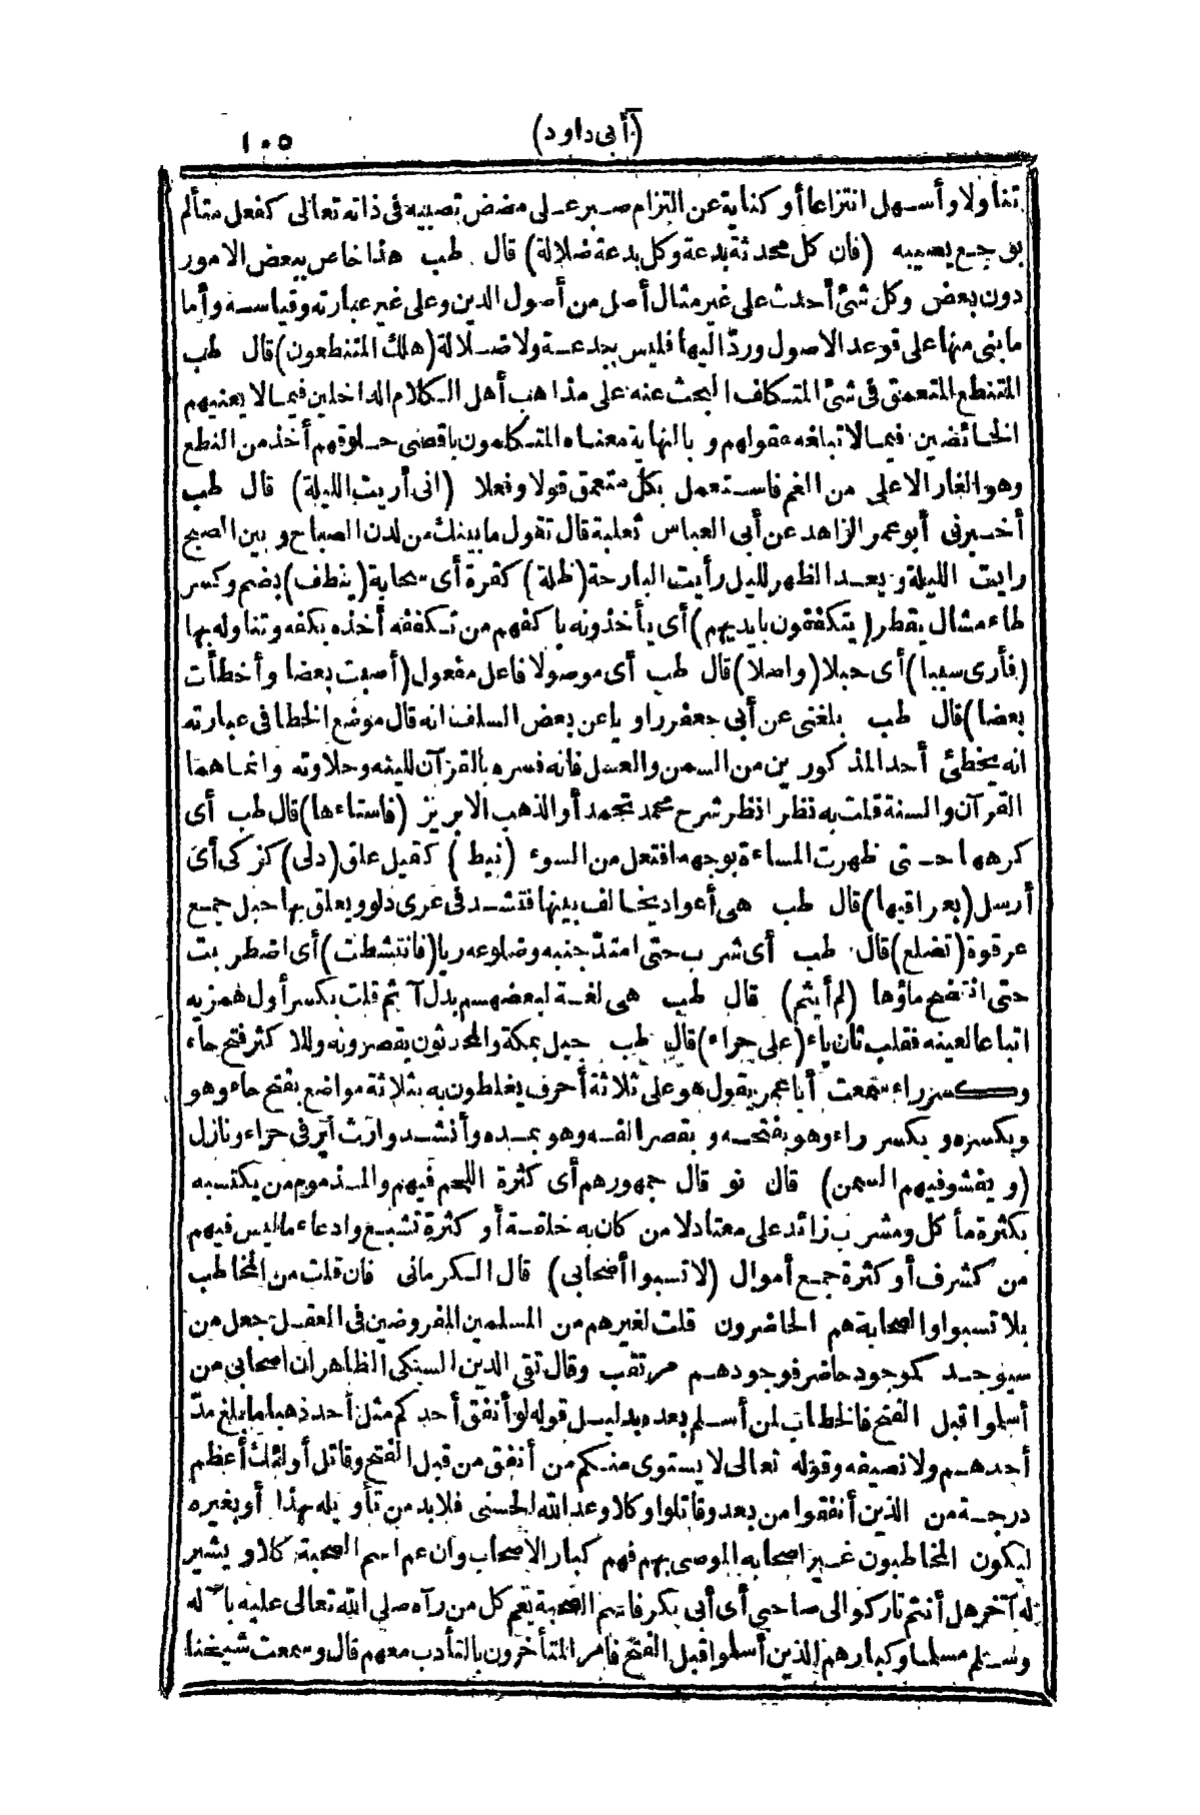 (أبى داود) ١٠٥
تناولا وأسهل انتزاعا أو كناية عن التزام صبر على مضض تصيبه فى ذاته تعالى كفعل متألم
بوجع يصيبه (فان كل محدثة بدعة وكل بدعة ضلالة) قال طب هذا خاص ببعض الامور
دون بعض وكل شئ أحدث على غير مثال أصل من أصول الدين وعلى غير عبارته وقياسه وأما
ما بنى منها على قوعد الاصول وردّ اليها فليس ببدعة ولا ضلالة (هلك المتنطعون) قال طب
المتنطع المتعمق فى شئ المتكلف البحث عنه على مذاهب أهل الكلام الداخلين فيما لا يعنيهم
الخائضين فيما لا تبلغه عقولهم وبالنهاية معناه المتكلمون باقصى حلوقهم أخذ من النطع
وهو الغار الاعلى من الفم فاستعمل بكل متعمق قولا وفعلا (انى أريت الليلة) قال طب
أخبرنى أبو عمر الزاهد عن أبى العباس ثعلبة قال تقول ما بينك من لدن الصباح وبين الصبح
رايت الليلة وبعد الظهر لليل رأيت البارحة (ظلة) كقرة أى سحابة (ينطف) بضم وكسر
طاء مثال يقطر (يتكففون بايديهم) أى يأخذونه باكفهم من تكففه أخذه بكفه وتناوله بها
(فأرى سببا) أى حبلا (واصلا) قال طب أى موصولا فاعل مفعول (أصبت بعضا وأخطأت
بعضا) قال طب بلغنى عن أبى جعفر راويا عن بعض السلف انه قال موضع الخطا فى عبارته
انه يخطئ أحد المذكورين من السمن والعسل فانه فسره بالقرآن للينه وحلاوته وانما هما
القرآن والسنة قلت به نظر انظر شرح محمد تحمد أو الذهب الابريز (فاستاءها) قال طب أى
كرهها حتى ظهرت المساءة بوجهه افتعل من السوء (نيط) كقيل علق (دلى) كزكى أى
أرسل (بعراقيها) قال طب هى أعواد يخالف بينها فتشد فى عرى دلو ويعلق بها حبل جمع
عرقوة (تضلع) قال طب أى شرب حتى امتدّ جنبه وضلوعه ريا (فانتشطت) أى اضطربت
حتى انتضح ماؤها (لم أيثم) قال طب هى لغة لبعضهم بدل آثم قلت بكسر أول همزيه
اتباعا لعينه فقلب ثان ياء (على حراء) قال طب جبل بمكة والمحدثون يقصرونه وللاكثر فتح حاء
وكسر راء سمعت أبا عمر يقول هو على ثلاثة أحرف يغلطون به بثلاثة مواضع بفتح حاء وهو
وبكسره وبكسر راء وهو بفتحه وبقصر الفه وهو بمده وأنشد وارث أبر فى حراء ونازل
(ويفشو فيهم السمن) قال نو قال جمهورهم أى كثرة اللحم فيهم والمذموم من يكتسبه
بكثرة مأكل ومشرب زائد على معتاد لا من كان به خلقة أو كثرة تشبع وادعاء ما ليس فيهم
من كشرف أو كثرة جمع أموال (لا تسبوا أصحابى) قال الكرمانى فان قلت من المخاطب
بلا تسبوا والصحابة هم الحاضرون قلت لغيرهم من المسلمين المفروضين فى العقل جعل من
سيوجد كموجود حاضر فوجودهم مرتقب وقال تقى الدين السبكى الظاهر ان اصحابى من
أسلموا قبل الفتح فالخطاب لمن أسلم بعد بدليل قوله لو أنفق أحدكم مثل أحد ذهبا ما بلغ مدّ
أحدهم ولا نصيفه وقوله تعالى لا يستوى منكم من أنفق من قبل الفتح وقاتل أولئك أعظم
درجة من الذين أنفقوا من بعد وقاتلوا وكلا وعد الله الحسنى فلا بد من تأويله بهذا أو بغيره
ليكون المخاطبون غير اصحابه الموصى بهم فهم كبار الاصحاب وان عم اسم الصحبة كلا ويشير
له آخر هل أنتم تاركو الى صاحبى أى أبى بكر فاسم الصحبة يعم كل من رآه صلى الله تعالى عليه بآله
وسلم مسلما وكبارهم الذين أسلموا قبل الفتح فامر المتأخرون بالتأدب معهم قال وسمعت شيخنا